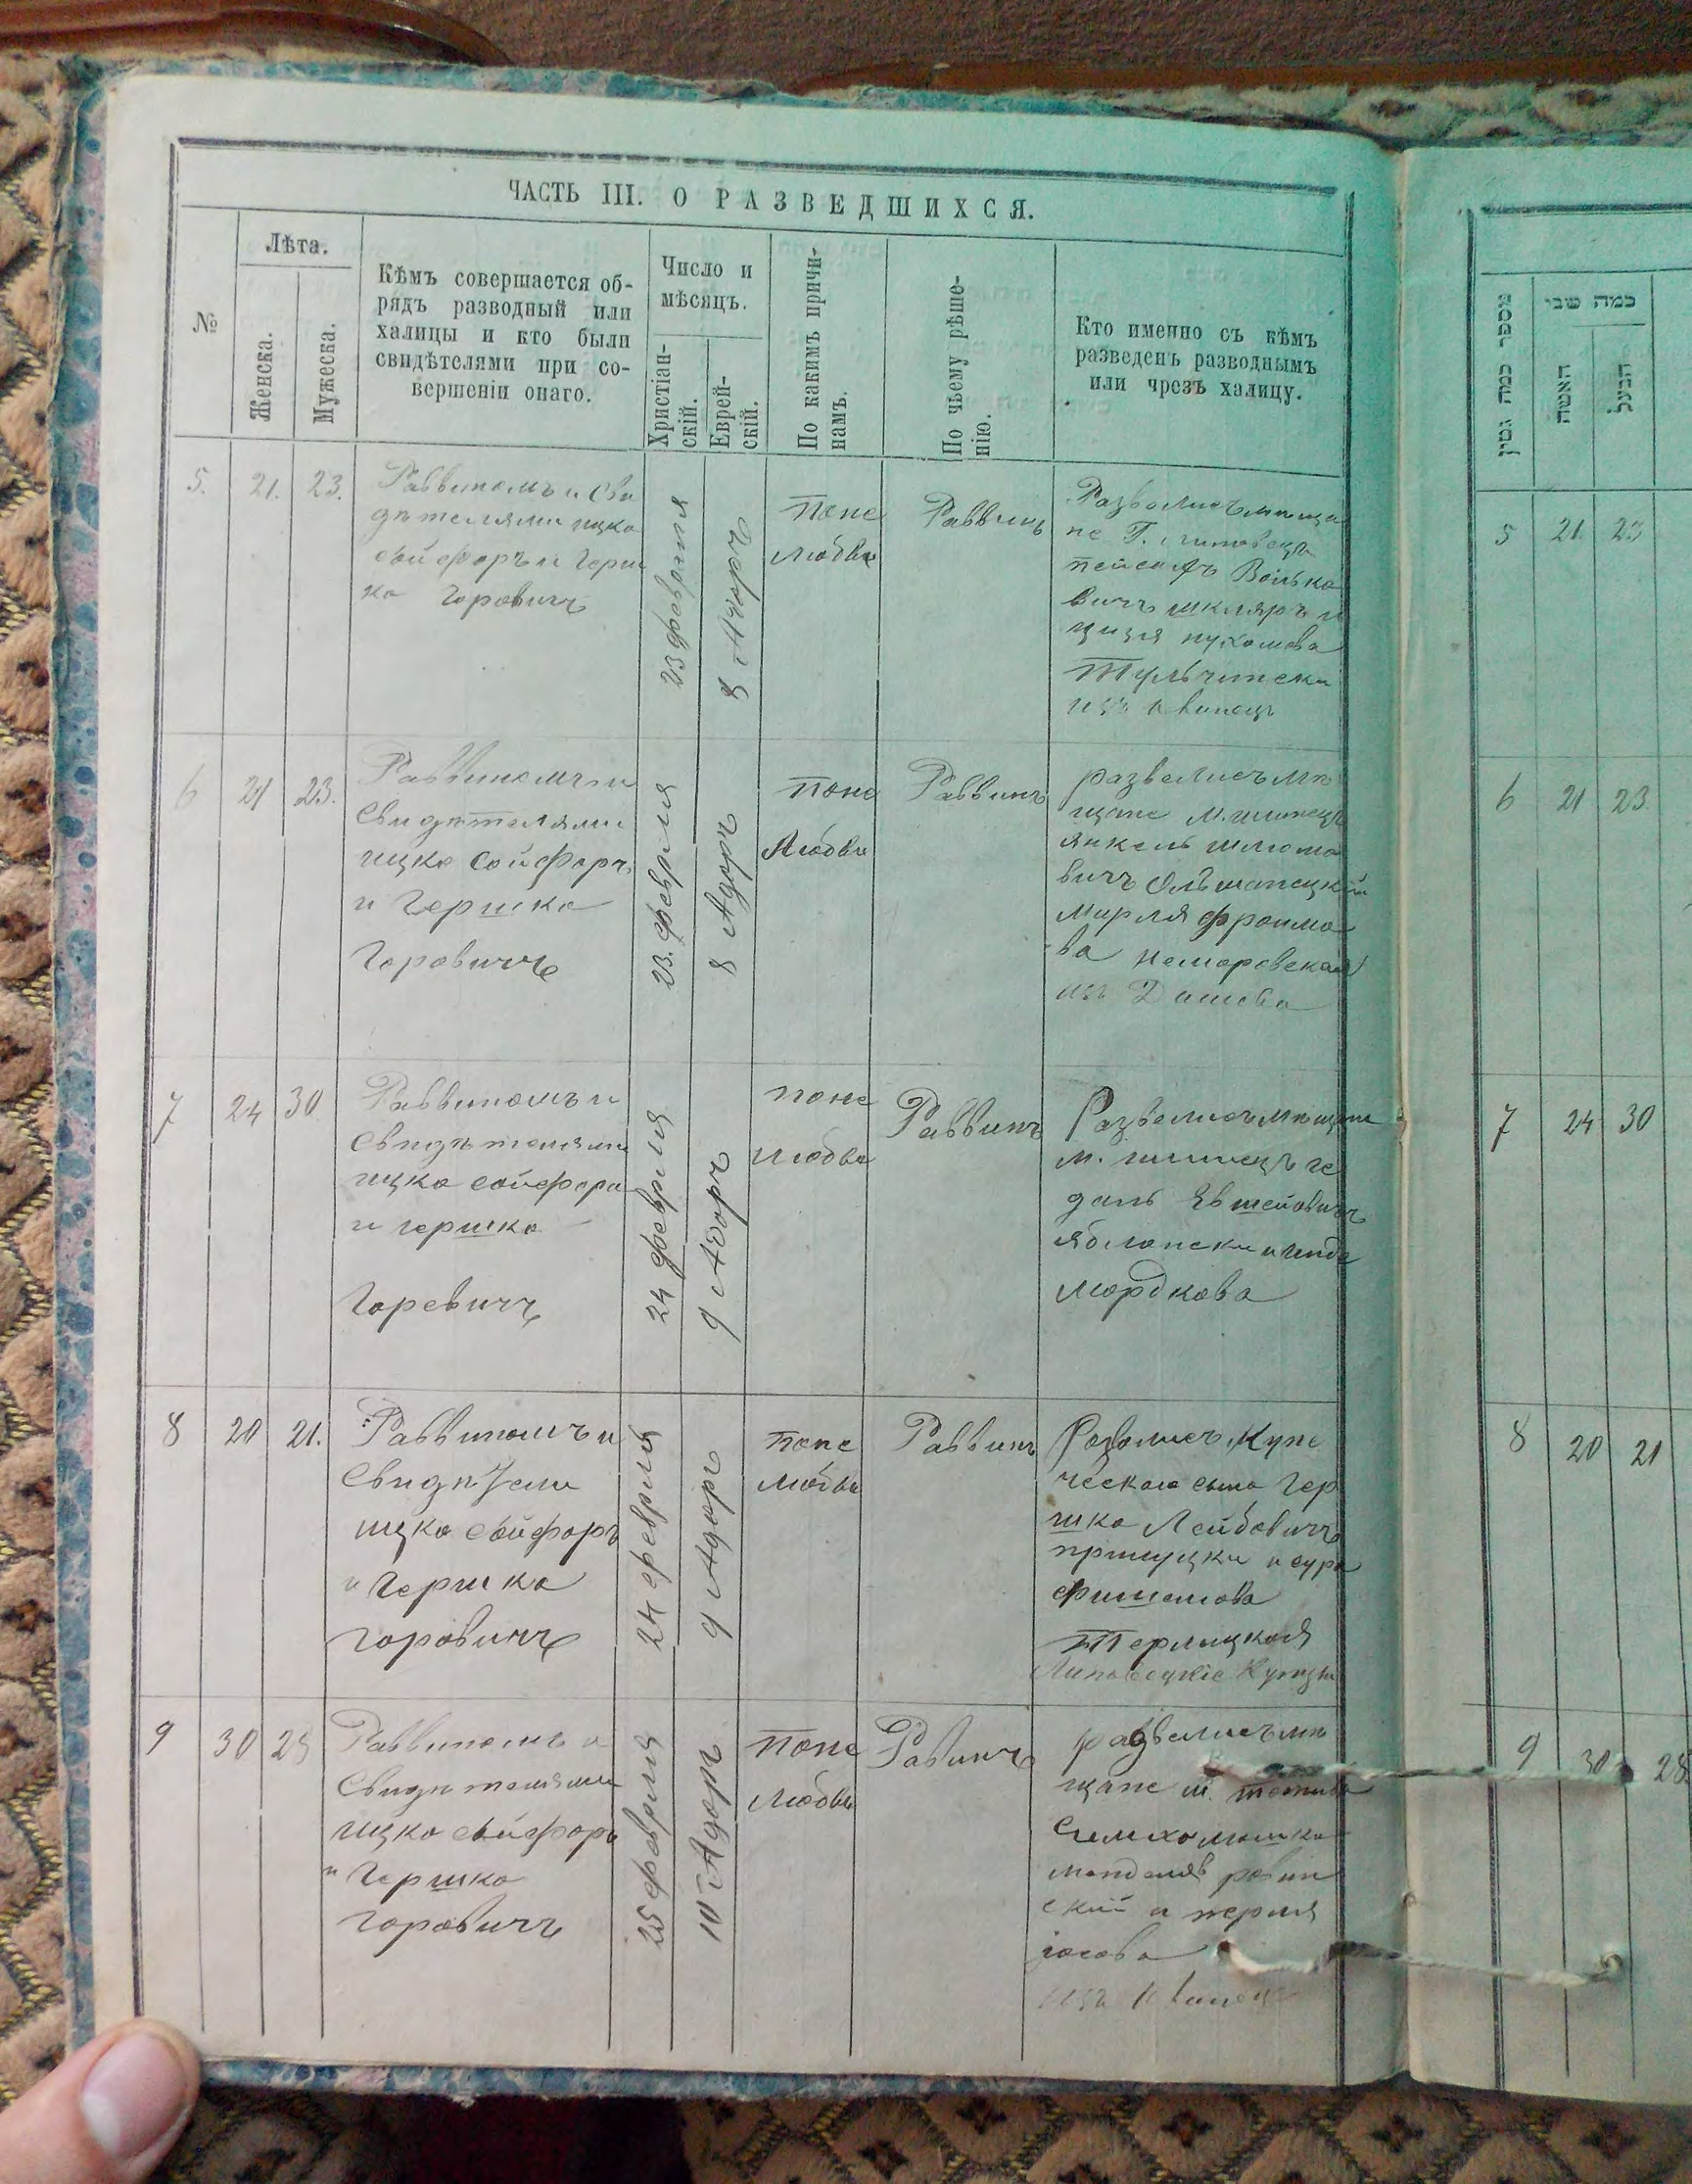 ЧАСТЬ III. О РАЗВЕДШИХСЯ.
№
Лѣта.
Женска.
Мужеска.
Кѣмъ совершается об-
рядъ разводный или
халицы и кто были
свидѣтелями при со-
вершеніи онаго.
Число и
мѣсяцъ.
Христіан-
скій.
Еврей-
скій.
По какимъ причи-
намъ.
По чьему рѣше-
нію.
Кто именно съ кѣмъ
разведенъ разводнымъ
или чрезъ халицу.
5. 21. 23.
Раввиномъ и Сви
дѣтелями ицко
сойферъ и Герш
ко Горовичъ
23 февраля
8 Адоръ
По не
любви
Раввинъ
Развелись мѣща
не Г.
Волько
вичъ шкляръ и
Тульчинска
6 21 23.
Раввиномъ и
Свидѣтелями
ицко Сойферъ
и Гершко
Горовичъ
23. февраля
8 Адоръ
По не
Любви
Раввинъ
развелись мѣ
щане м.
янкель шлюмо
вичъ Ольшанецкій
Мирля фроимо
ва немеровская
изъ Дашева
7 24 30
Раввиномъ и
Свидѣтелями
ицко сойфера
и гершко
Горевичъ
24 февраля
9 Адоръ
По не
любви
Раввинъ
Развелись мѣщане
м. ге
даль
яблонски и
Мордкова
8 20 21.
Раввиномъ и
Свидѣтели
ицко сойферъ
и Гершко
Горовичъ
24 февраля
9 Адоръ
По не
любви
Раввинъ
Развелись Купе
ческаго сына Гер
шко Лейбовичъ
прилуцки и сура
фишелова
Терлицкая
Липовецкіе Купцы
9 30 28
Раввиномъ и
Свидѣтелями
ицко сойферъ
и Гершко
Горовичъ
25 февраля
10 Адоръ
По не
Любви
Равинъ
развелись мѣ
щане
ровин
скій и перля
מספר כמה גטין
כמה שני
האשה
הבעל
5 21 23
6 21 23.
7 24 30
8 20 21
9 30 28